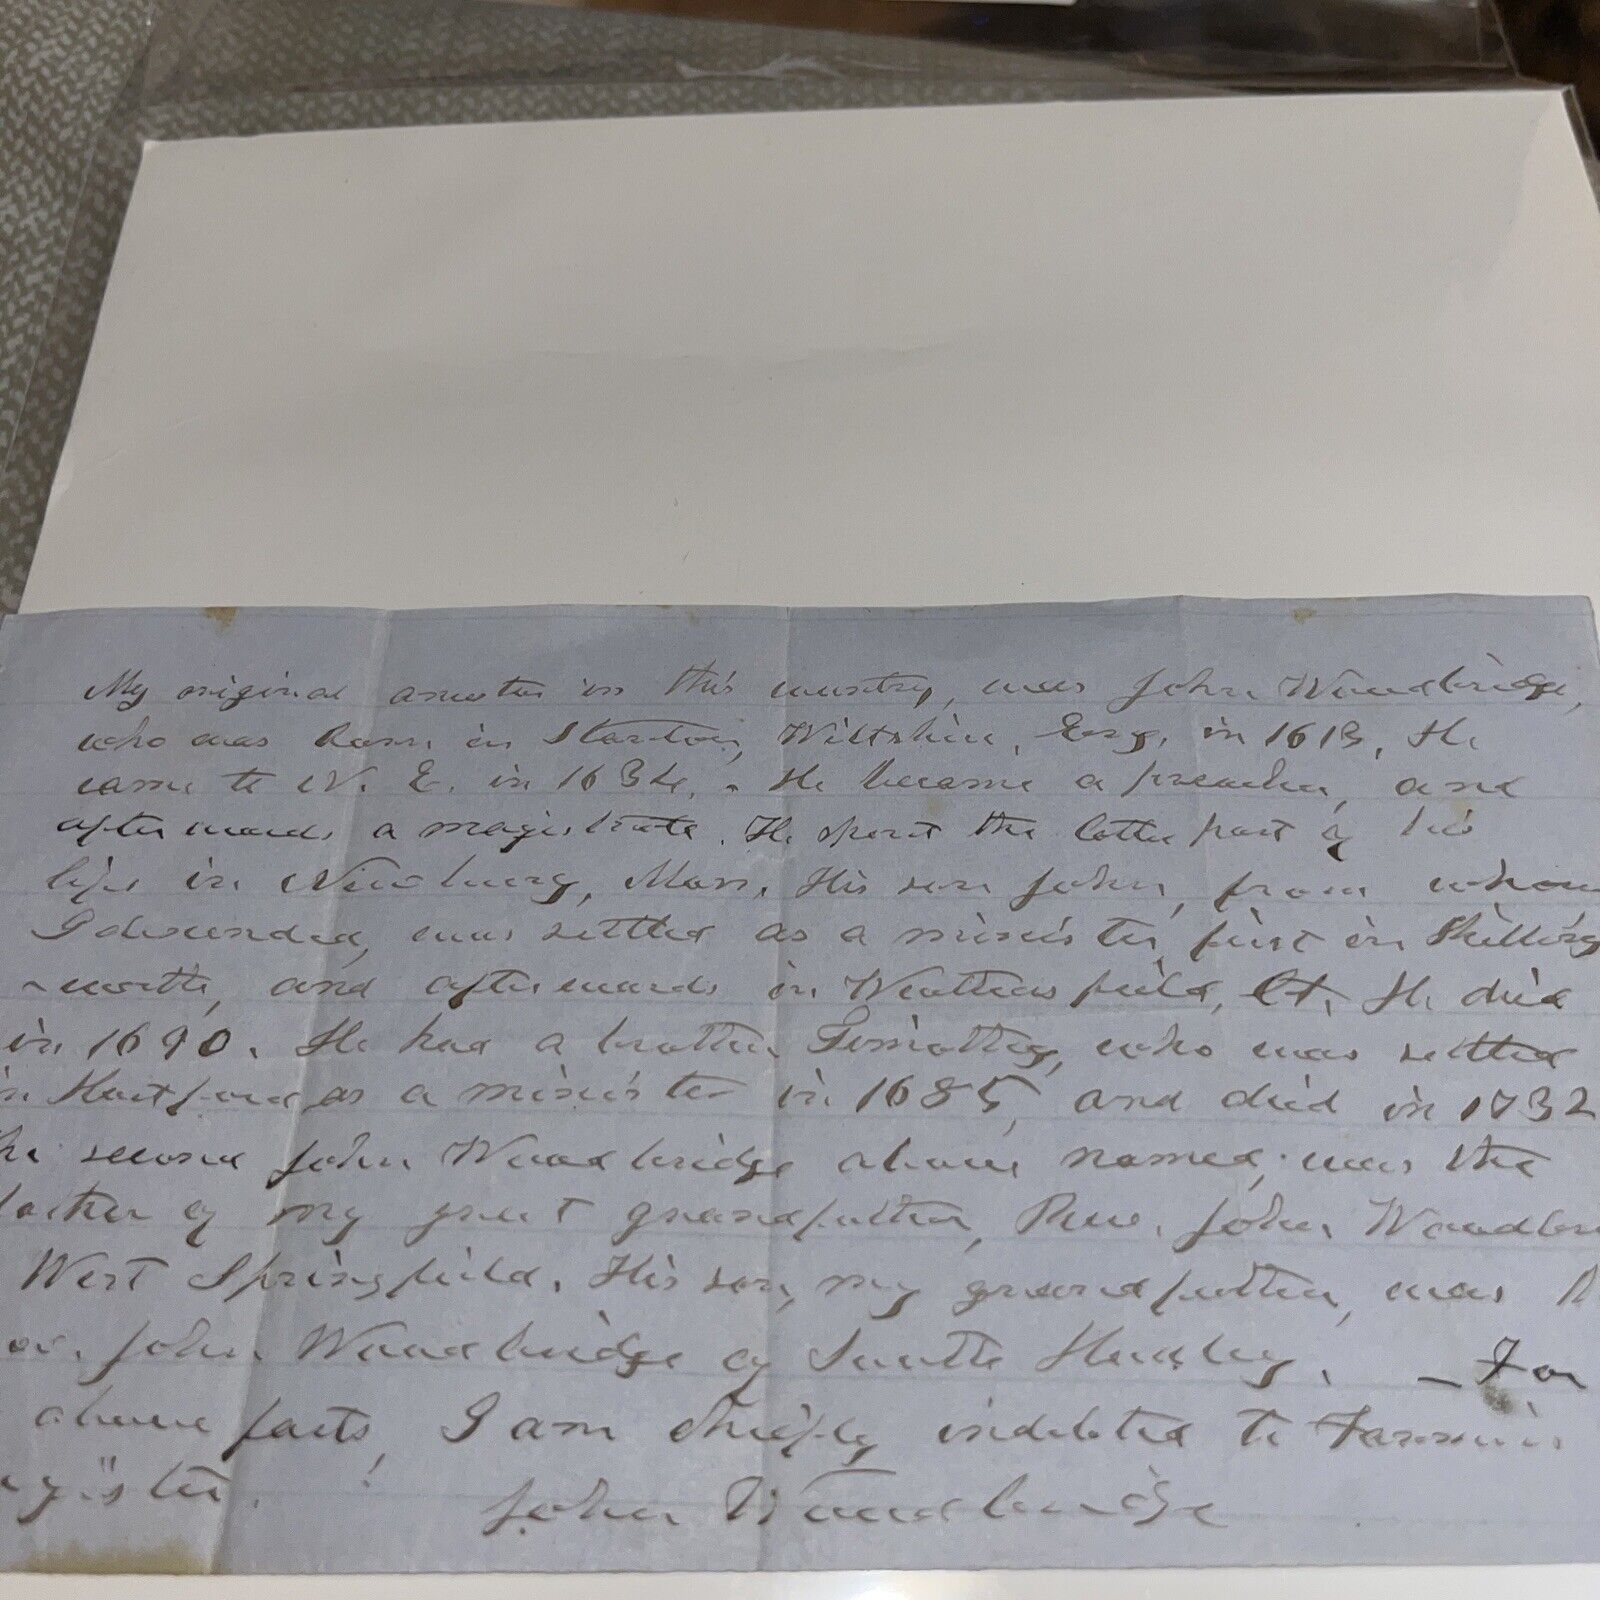 My original ancestor in this country, was John Woodbridge,
who was born in Stanton, Wiltshire, Eng. in 1613. He
came to N. E. in 1634. - He became a preacher, and
afterwards a magistrate. He spent the latter part of his
life in Newbury, Mass. His son John, from whom
I descended, was settled as a minister, first in Killing
-worth, and afterwards in Weathersfield, Ct. He died
in 1690. He had a brother Timothy, who was settled
in Hartford as a minister in 1685, and died in 1732
the second John Woodbridge above named, was the
father of my great grandfather, Rev. John Woodbri
West Springfield. His son, my grandfather, was R
ev. John Woodbridge of South Hadley. - For
above facts, I am chiefly indebted to Farmer's
egister.
John Woodbridge